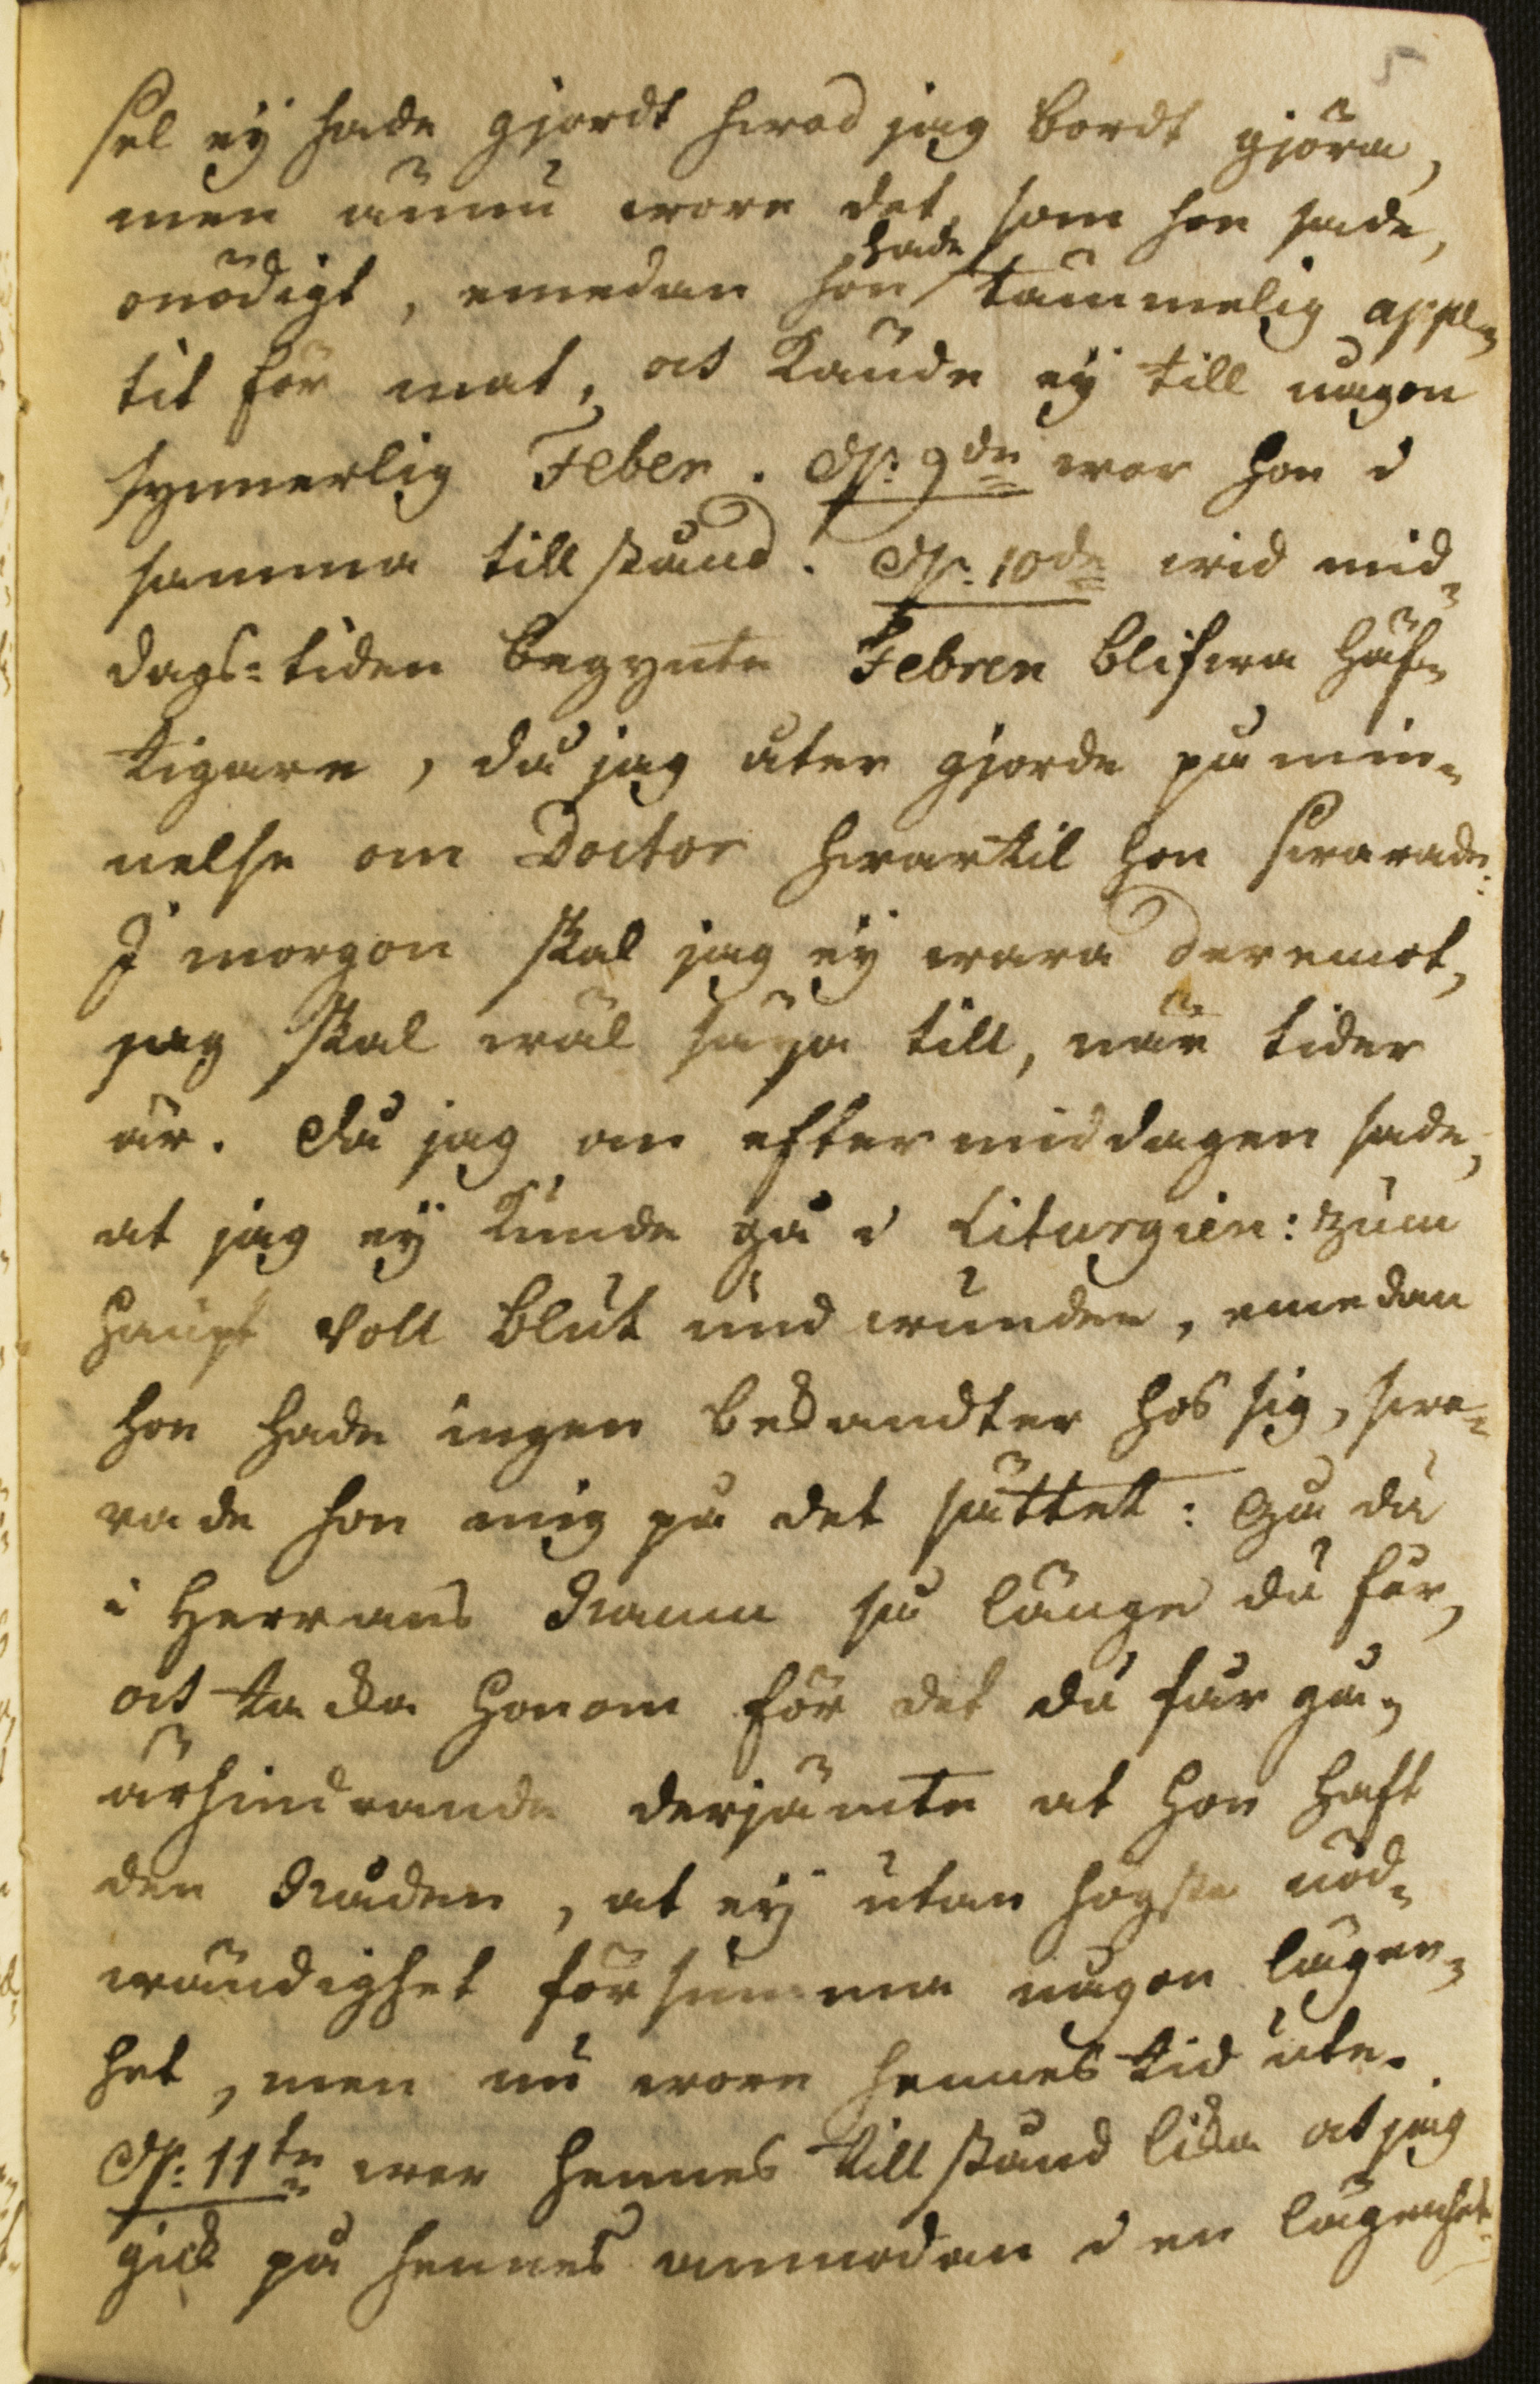 5
sel ej hade gjordt hwad jag bordt gjöra,
men ännu wore det, som hon sade,
onödigt, emedan hon hade tämmelig appe-
tit för mat, och kände ej till någon
synnerlig Feber. D. 9de war hon i
samma tillstånd. D. 10de wid mid-
dags-tiden begynte Febren blifwa häf-
tigare, då jag åter gjorde påmin-
nelse om Doctor hwartil hon swarade:
I morgon skal jag ej wara deremot,
jag skal wäl säga till, när tider
är. Då jag om eftermiddagen sade,
at jag ej kunde gå i Liturgien: zum
Haupt voll Blut und wunden, emedan
hon hade ingen bekandter hos sig, swa-
rade hon mig på det sättet: Gå du
i Herrans Namn så länge du får,
och tacka honom för det du får gå,
ärhindrande derjämte at hon haft
den Nåden, at ej utan högsta nöd-
wändighet försumma någon lägen-
het, men nu wore hennes tid ute.
D. 11te war hennes tillstånd lika at jag
gick på hennes anmodan i en lägenhet